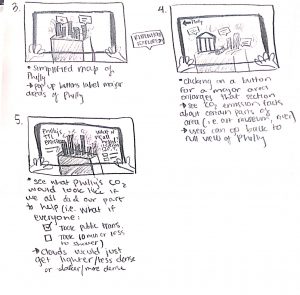 3.
• simplified map of
Philly
→ pop up buttons label major
areas of Philly
4.
← Philly
• clicking on a button
for a major area
enlarges that section
→ see CO₂ emission facts
about certain parts of
area (i.e. art museum, river)
→ users can go back to
full view of Philly
5.
Philly's
• see what Philly's CO₂
would look like if
we all did our part
to help (i.e. what if
everyone:
☑ Took public trans.
☐ Took 10 min or less
to shower)
→ Clouds would just
get lighter/less dense
or darker/more dense